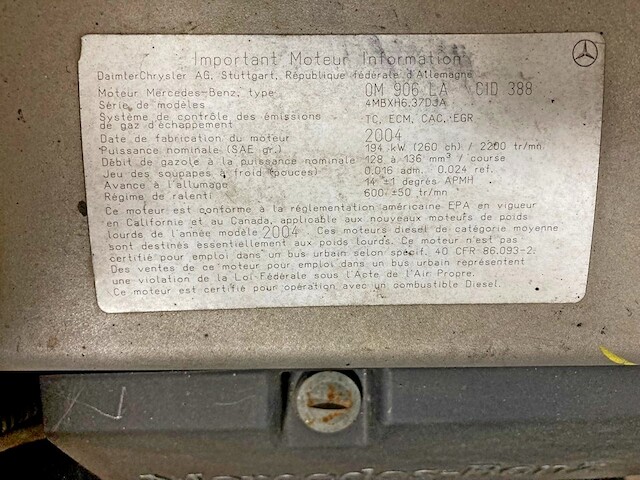 Important Moteur Information
DaimlerChrysler AG, Stuttgart, République fédérale d'Allemagne
Moteur Mercedes-Benz, type OM 906 LA CID 388
Série de modèles 4MBXH6.37DJA
Système de contrôle des émissions de gaz d'échappement TC, ECM, CAC, EGR
Date de fabrication du moteur 2004
Puissance nominale (SAE gr.) 194 kW (260 ch) / 2200 tr/mn
Débit de gazole à la puissance nominale 128 à 136 mm³ / course
Jeu des soupapes à froid (pouces) 0.016 adm. 0.024 ref.
Avance à l'allumage 14 ±1 degrés APMH
Régime de ralenti 600 ±50 tr/mn
Ce moteur est conforme à la réglementation américaine EPA en vigueur
en Californie et au Canada, applicable aux nouveaux moteurs de poids
lourds de l'année modèle 2004. Ces moteurs diesel de catégorie moyenne
sont destinés essentiellement aux poids lourds. Ce moteur n'est pas
certifié pour emploi dans un bus urbain selon spécif. 40 CFR 86.093-2.
Des ventes de ce moteur pour emploi dans un bus urbain représentent
une violation de la Loi Fédérale sous l'Acte de l'Air Propre.
Ce moteur est certifié pour opération avec un combustible Diesel.
Mercedes-Benz